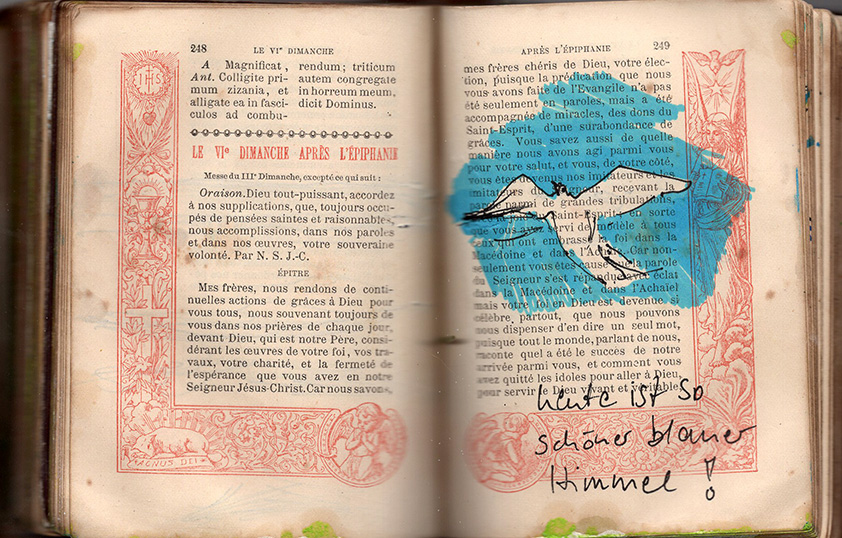 248
LE VIᵉ DIMANCHE
A Magnificat,
Ant. Colligite pri-
mum zizania, et
alligate ea in fasci-
culos ad combu-
rendum; triticum
autem congregate
in horreum meum,
dicit Dominus.
LE VIᵉ DIMANCHE APRÈS L'ÉPIPHANIE
Messe du IIIᵉ Dimanche, excepté ce qui suit :
Oraison. Dieu tout-puissant, accordez
à nos supplications, que, toujours occu-
pés de pensées saintes et raisonnables,
nous accomplissions, dans nos paroles
et dans nos œuvres, votre souveraine
volonté. Par N. S. J.-C.
ÉPITRE
Mes frères, nous rendons de conti-
nuelles actions de grâces à Dieu pour
vous tous, nous souvenant toujours de
vous dans nos prières de chaque jour,
devant Dieu, qui est notre Père, consi-
dérant les œuvres de votre foi, vos tra-
vaux, votre charité, et la fermeté de
l'espérance que vous avez en notre
Seigneur Jésus-Christ. Car nous savons,
IHS
AGNUS DEI
APRÈS L'ÉPIPHANIE
249
mes frères chéris de Dieu, votre élec-
tion, puisque la prédication que nous
vous avons faite de l'Evangile n'a pas
été seulement en paroles, mais a été
accompagnée de miracles, des dons du
Saint-Esprit, d'une surabondance de
grâces. Vous savez aussi de quelle
manière nous avons agi parmi vous
pour votre salut, et vous, de votre côté,
vous êtes devenus nos imitateurs et les
imitateurs du Seigneur, recevant la
parole parmi de grandes tribulations,
la joie Saint-Esprit, en sorte
que vous avez servi de modèle à tous
ceux qui ont embrassé la foi dans la
Macédoine et dans l'Achaïe. Car non-
seulement vous êtes cause que la parole
du Seigneur s'est répandue avec éclat
dans la Macédoine et dans l'Achaïe
mais votre foi en Dieu est devenue si
célèbre partout, que nous pouvons
nous dispenser d'en dire un seul mot,
puisque tout le monde, parlant de nous,
raconte quel a été le succès de notre
arrivée parmi vous, et comment vous
avez quitté les idoles pour aller à Dieu,
pour servir le Dieu vivant et véritable
heute ist so
schöner blauer
Himmel !